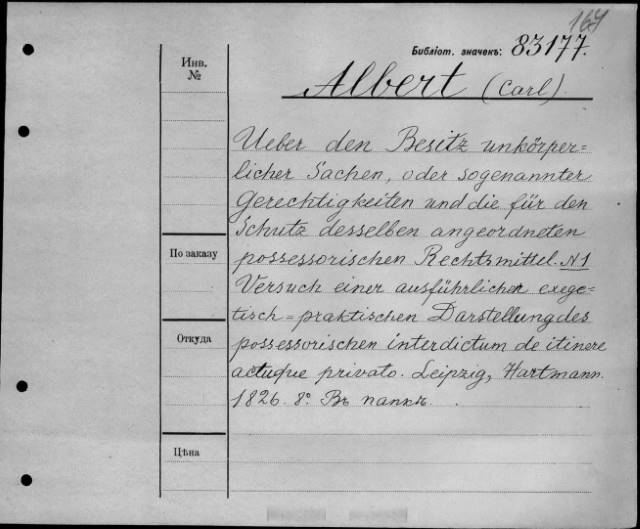 164
Библіот. значекъ: 83177.
Инв.
№
Albert (Carl).
Ueber den Besitz unkörper=
licher Sachen, oder sogenannter
Gerechtigkeiten und die für den
Schutz desselben angeordneten
possessorischen Rechtsmittel. N1
Versuch einer ausführlichen exege=
tisch=praktischen Darstellung des
possessorischen interdictum de itinere
actuque privato. Leipzig, Hartmann.
1826. 8° Въ папкѣ.
По заказу
Откуда
Цѣна